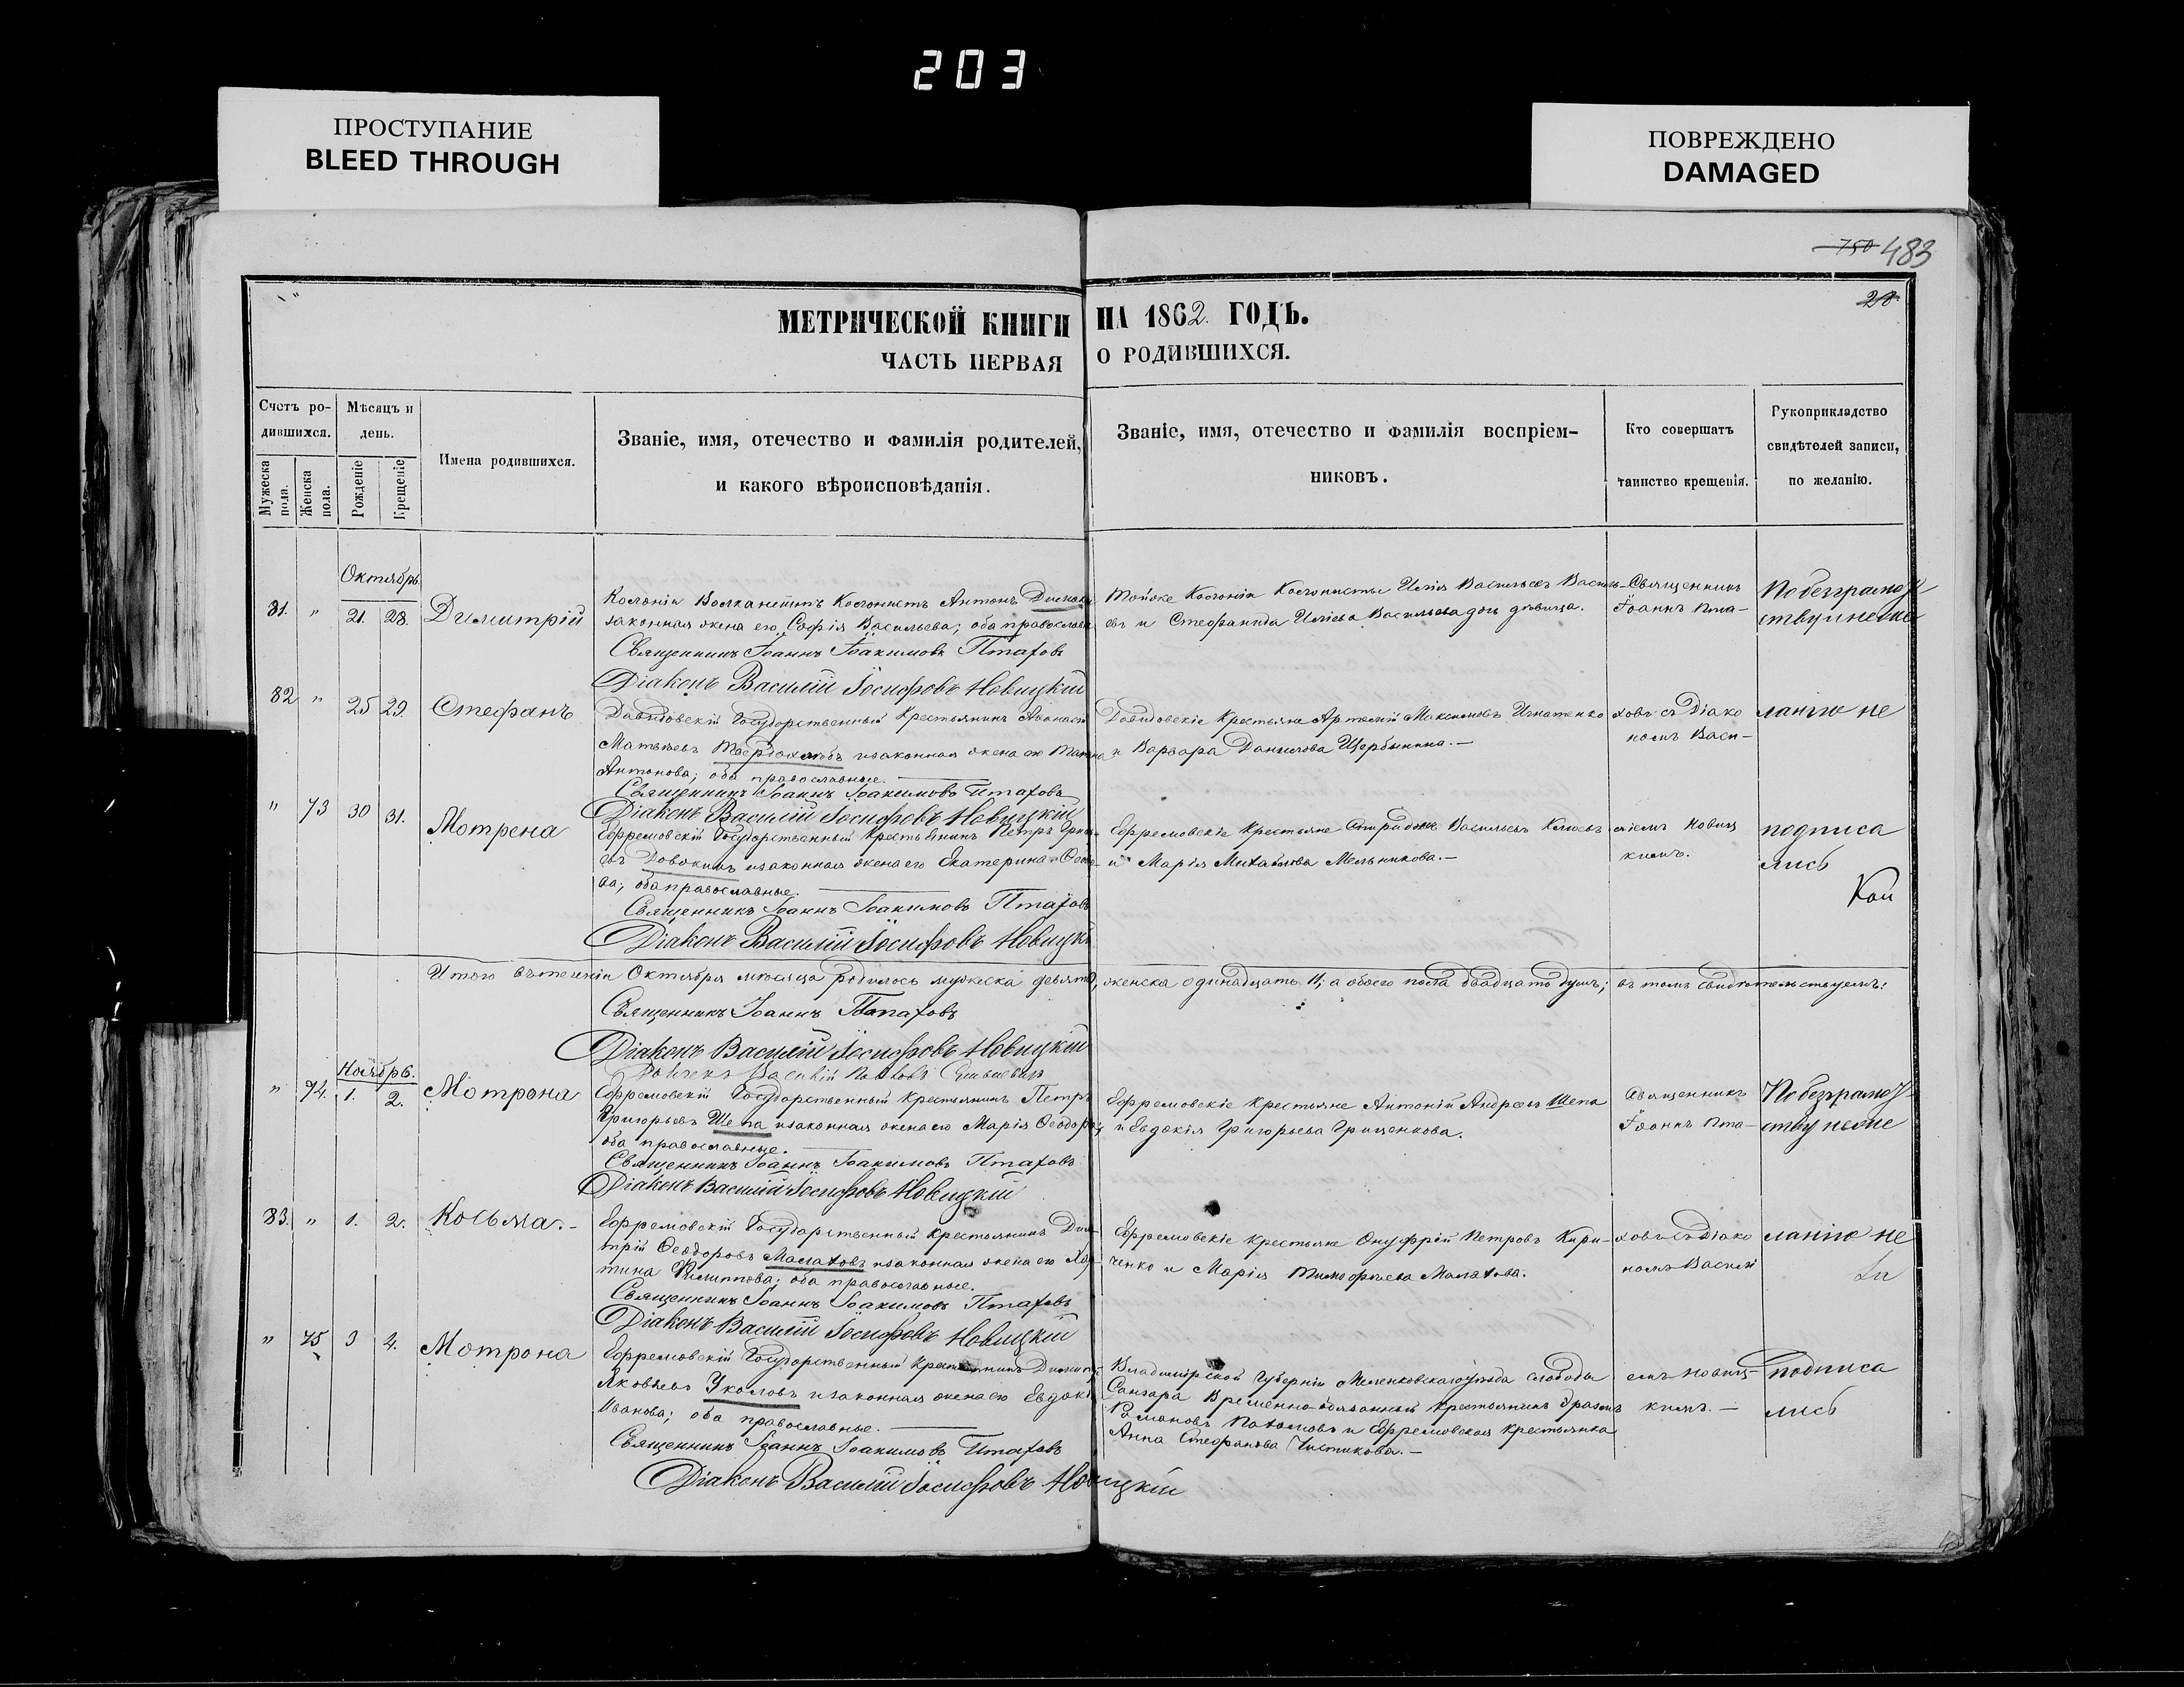 203
ПРОСТУПАНИЕ
BLEED THROUGH
ПОВРЕЖДЕНО
DAMAGED
750 483
28
МЕТРИЧЕСКОЙ КНИГИ НА 1862 ГОДЪ.
ЧАСТЬ ПЕРВАЯ О РОДИВШИХСЯ.
Счетъ ро-
дившихся.
Мужеска пола.
Женска пола.
Мѣсяцъ и
день.
Рожденіе
Крещеніе
Имена родившихся.
Званіе, имя, отечество и фамилія родителей,
и какого вѣроисповѣданія.
Званіе, имя, отечество и фамилія воспріем-
никовъ.
Кто совершатъ
таинство крещенія.
Рукоприкладство
свидѣтелей записи,
по желанію.
Октябрь
81. " 21. 28. Димитрій
Колоніи Волканештъ Колонистъ Антонъ
законная жена его Софія Васильева; оба православн
Священникъ Іоаннъ Іоакимовъ Птаховъ
Діаконъ Василій Іосифовъ Новицкій
Тойже Колоніи Колонисты Илія Васильевъ Василь-
евъ и Стефанида Иліева Васильева дѣвица.
Священникъ
Іоаннъ Пта-
По безграмот
ству и неже
82 " 25 29. Стефанъ
Давидовскій Государственный Крестьянинъ Аѳанасій
Матвѣевъ Твердохлѣбъ и законная жена его Татіана
Антонова; оба православные.
Священникъ Іоаннъ Іоакимовъ Птаховъ
Діаконъ Василій Іосифовъ Новицкій
Давидовскіе Крестьяне Артемій Максимовъ Игнатенко
и Варвара Данилова Щербинина.
ховъ съ Діако
номъ Васи-
ланію не
" 73 30 31. Мотрена
Ефремовскій Государственный Крестьянинъ Петръ
и законная жена его Екатерина
ва; оба православные.
Священникъ Іоаннъ Іоакимовъ Птаховъ
Діаконъ Василій Іосифовъ Новицкі
Ефремовскіе Крестьяне Спиридонъ Васильевъ
и Марія Михайлова Мельникова.
ліемъ Новиц
кимъ.
подписа
лись
Кои
Итого въ теченіи Октября мѣсяца родилось мужеска девять, женска одинадцать 11; а обоего пола двадцать душъ; въ томъ свидѣтельствуемъ:
Священникъ Іоаннъ Птаховъ
Діаконъ Василій Іосифовъ Новицкій
Ноябрь.
" 74. 1. 2. Мотрона
Ефремовскій Государственный Крестьянинъ Петръ
Григорьевъ Шепа и законная жена его Марія Ѳеодоро
оба православные.
Священникъ Іоаннъ Іоакимовъ Птаховъ
Діаконъ Василій Іосифовъ Новицкій
Ефремовскіе Крестьяне Антоній Андреевъ Шепа
и Евдокія Григорьева Грищенкова.
Священникъ
Іоаннъ Пта-
По безграмот
ству неже
83. " 1. 2. Косьма.
Ефремовскій Государственный Крестьянинъ Дими
трій Ѳеодоровъ Малаховъ и законная жена его
тина Филиппова; оба православные.
Священникъ Іоаннъ Іоакимовъ Птаховъ
Діаконъ Василій Іосифовъ Новицкій
Ефремовскіе Крестьяне Онуфрій Петровъ Кири-
ченко и Марія Тимофѣева Малахова.
ховъ съ Діако
номъ Василі
ланію не
" 75 3 4. Мотрона
Ефремовскій Государственный Крестьянинъ Димит
Яковлевъ Уколовъ и законная жена его Евдокі
Иванова; оба православные.
Священникъ Іоаннъ Іоакимовъ Птаховъ
Діаконъ Василій Іосифовъ Новицкій
Владимірской Губерніи Меленковскаго уѣзда слободы
Временно-обязанный Крестьянинъ
Романовъ и Ефремовская Крестьянка
Анна Стефанова Чистикова.
емъ Новиц-
кимъ.
подписа
лись